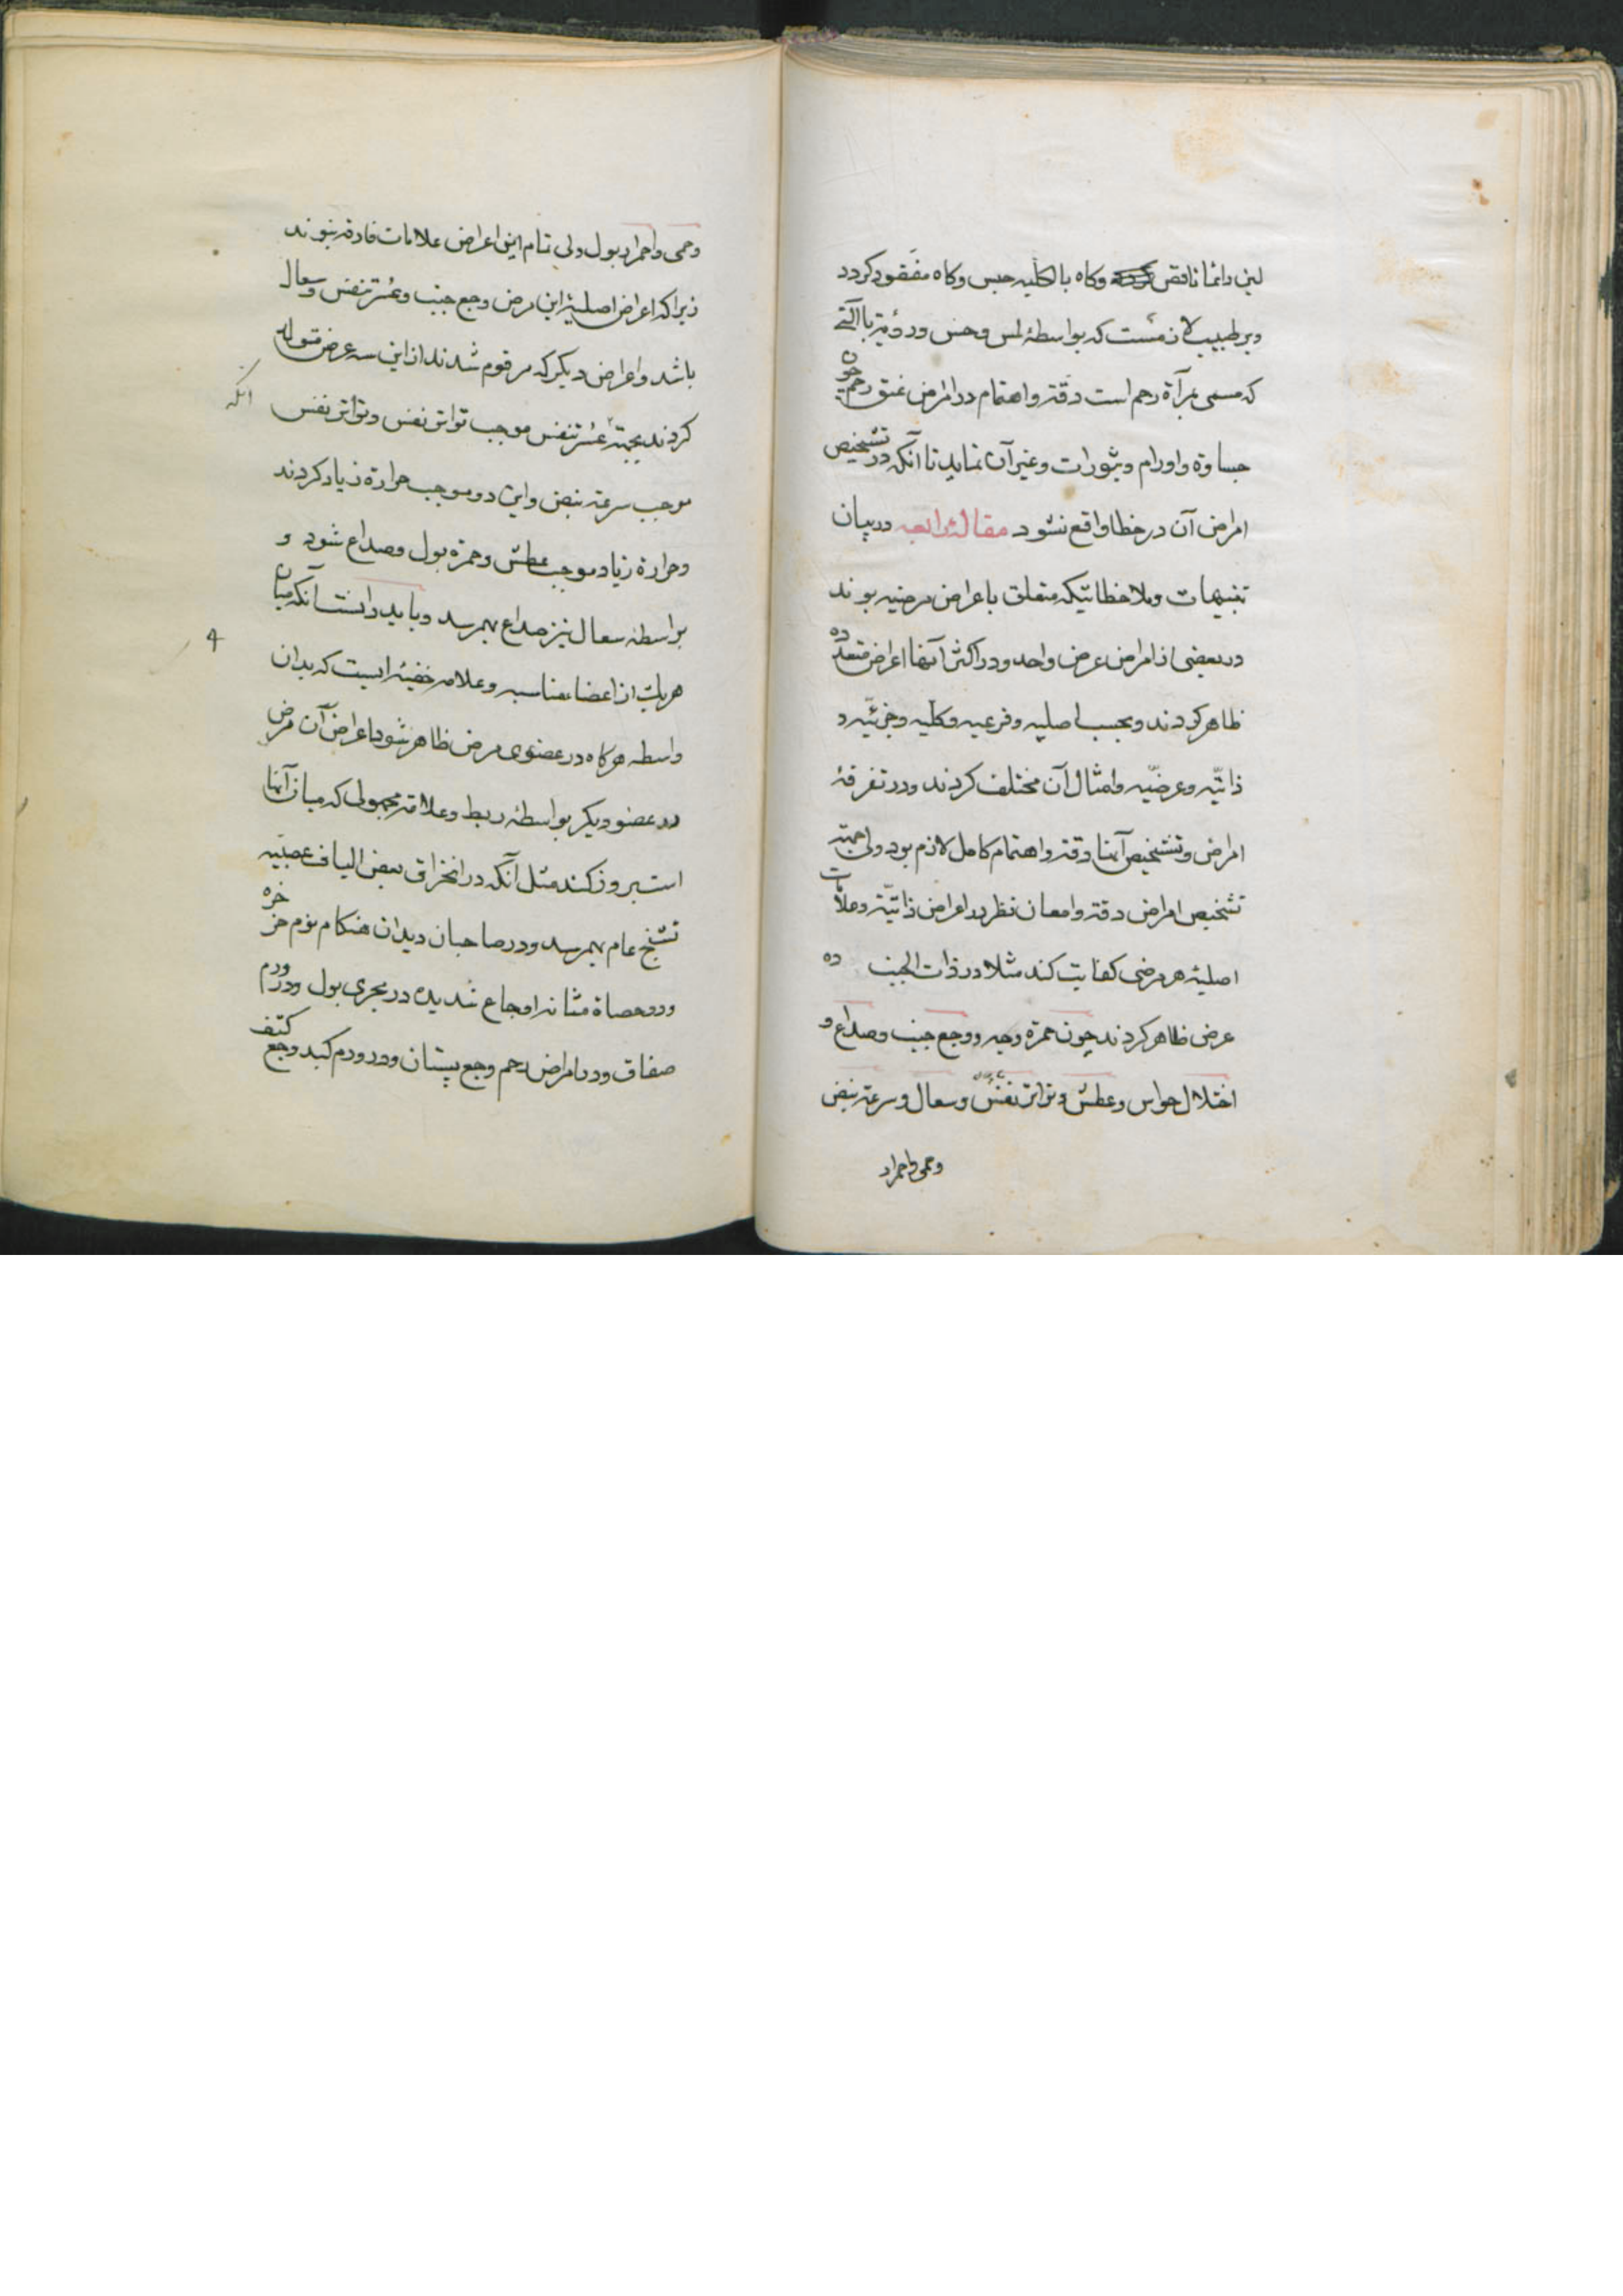 لبن دائما ناقص وکاه بالکلیه حبس وکاه مفقود کردد
وبر طبیب لازمست که بواسطهٔ لمس وحس ورؤیة باآلتی
که مسمی بمرآة رحم است دقة واهتمام در امراض عنق رحم چون
جساوة واورام وبثورات وغیر آن نماید تا آنکه در تشخیص
امراض آن در خطا واقع نشود مقالهٔ رابعه در بیان
تنبیهات وملاحظاتیکه متعلق باعراض مرضیه بوند
در بعضی از امراض عرض واحد ودر اکثر آنها اعراض متعدده
ظاهر کردند وبحسب اصلیه وفرعیه وکلیه وجزئیّه و
ذاتیّه وعرضیّه وامثال آن مختلف کردند ودر تفرقهٔ
امراض وتشخیص آنها دقة واهتمام کامل لازم بود ولی بجهة
تشخیص امراض دقة وامعان نظر در اعراض ذاتیّة وعلامات
اصلیهٔ هر مرضی کفایت کند مثلا در ذات الجنب ده
عرض ظاهر کردند چون حمرة وجه ووجع جنب وصداع و
اختلال حواس وعطش وتواتر نفس وسعال وسرعة نبض
وحمی واحمرار
وحمی واحمرار بول ولی تمام این اعراض علامات فارقه نبوند
زیرا که اعراض اصلیهٔ این مرض وجع جنب وعسرة تنفس وسعال
باشد واعراض دیکر که مرقوم شدند از این سه عرض متولد
کردند بجهة آنکه عسرة تنفس موجب تواتر نفس وتواتر نفس
موجب سرعة نبض واین دو موجب حرارة زیاد کردند
وحرارة زیاد موجب عطش وحمرة بول وصداع شود و
بواسطهٔ سعال نیز صداع بهمرسد وباید دانست آنکه میان
هریک از اعضا مناسبه وعلامه خفیهٔ ایست که بدان
واسطه هرکاه در عضوی مرض ظاهر شود اعراض آن مرض
در عضو دیکر بواسطهٔ ربط وعلاقهٔ مجهولی که میان آنها
است بروز کند مثل آنکه در انخراق بعض الیاف عصبیّه
تشنج عام بهمرسد ودر صاحبان دیدان هنکام نوم خرخره
ودر حصاة مثانه اوجاع شدیده در مجری بول ودر ورم
صفاق ودر امراض رحم وجع پستان ودر ورم کبد وجع کتف